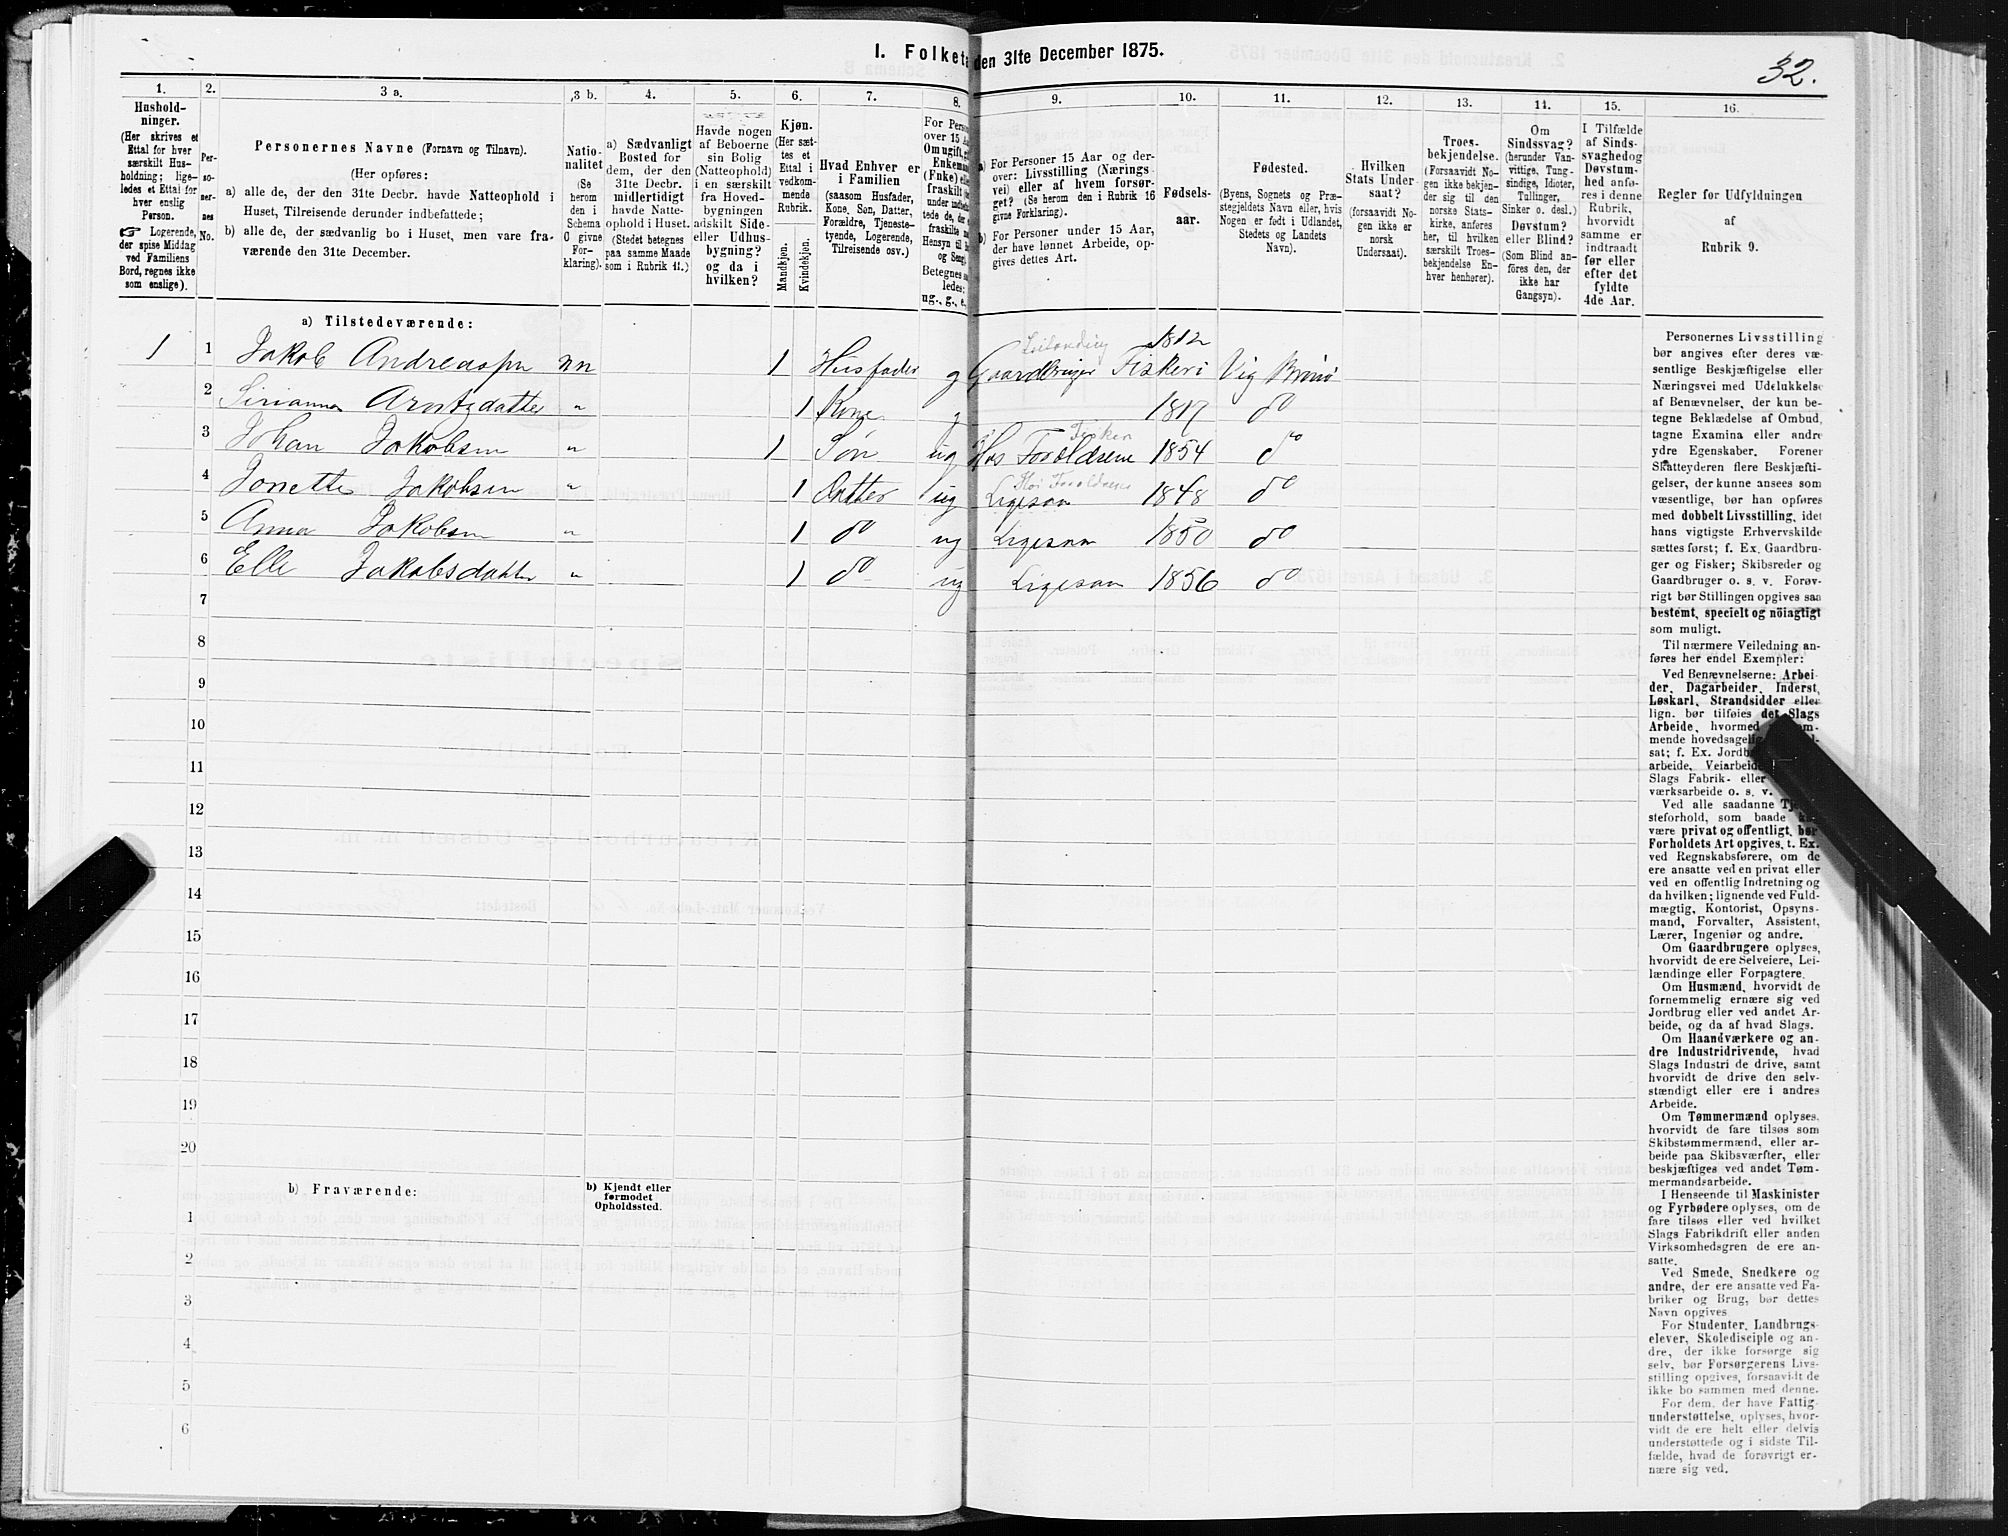 1. Folketæ den 31te December 1875.
32.
1.
2.
3 a.
3 b.
4.
5.
6.
7.
8.
9.
10.
11.
12.
13.
14.
15.
16.
Hushold-
ninger.
(Her skrives et
Ettal for hver
særskilt Hus-
holdning; lige-
ledes et Ettal for
hver enslig
Person.
☞ Logerende,
der spise Middag
ved Familiens
Bord, regnes ikke
som enslige).
Per-
so-
ner-
nes
No.
Personernes Navne (Fornavn og Tilnavn).
(Her opføres:
a) alle de, der den 31te Decbr. havde Natteophold i
Huset, Tilreisende derunder indbefattede;
b) alle de, der sædvanlig bo i Huset, men vare fra-
værende den 31te December.
Natio-
nalitet
(Se
herom
den i
Schema
C givne
For-
klaring).
a) Sædvanligt
Bosted for
dem, der den
31te Decbr.
midlertidigt
havde Natte-
ophold i Huset.
(Stedet betegnes
paa samme Maade
som i Rubrik 11.)
Havde nogen
af Beboerne
sin Bolig
(Natteophold)
i en særskilt
fra Hoved-
bygningen
adskilt Side-
eller Udhus-
bygning?
og da i
hvilken?
Kjøn.
(Her sæt-
tes et
Ettal i
vedkom-
mende
Rubrik.
Mandkjøn.
Kvindekjøn.
Hvad Enhver er
i Familien
(saasom Husfader,
Kone, Søn, Datter,
Forældre, Tjeneste-
tyende, Logerende,
Tilreisende osv.)
For Perso
over 15 A
Om ugift, g
Enkem
(Fnke) el
fraskilt
under indb
tede de,
fraskilte
Hensyn til
og Seng
Betegnes
ledes:
ug., g., e.,
a) For Personer 15 Aar og der-
over: Livsstilling (Nærings
vei) eller af hvem forsør-
get? (Se herom den i Rubrik 16
givne Forklaring).
b) For Personer under 15 Aar,
der have lønnet Arbeide, op-
gives dettes Art.
Fødsels-
aar.
Fødested.
(Byens, Sognets og Præ-
stegjeldets Navn eller, hvis
Nogen er født i Udlandet,
Stedets og Landets
Navn).
Hvilken
Stats Under
saat?
(forsaavidt No-
gen ikke er
norsk
Undersaat).
Troes-
bekjendelse.
(Forsaavidt No-
gen ikke bekjen-
der sig til den
norske Stats-
kirke, anføres
her, til hvilken
særskilt Troes-
bekjendelse En-
hver henhører).
Om
Sindssvag?
(herunder Van-
vittige, Tung-
sindige, Idioter,
Tullinger,
Sinker o. desl.)
Døvstum?
eller Blind?
(Som Blind an-
føres den, der
ikke har
Gangsyn).
I Tilfælde
af Sinds-
svaghed og
Døvstum-
hed anfø-
res i denne
Rubrik,
hvorvidt
samme er
indtraadt
før eller
efter det
fyldte
4de Aar.
Regler for Udfyldningen
af
Rubrik 9.
a) Tilstedeværende:
1 1 Jakob Andreaspn nn 1 Husfader g Leilending Gaardbruger Fiskeri 1812 Vig Brønø
2 Arntzdatter " 1 Kone 1817 do
3 Johan Jakobsen " 1 Søn ug Hos Forældrene Fisker 1854 do
4 Jonette Jakobsen " 1 Datter ug Ligesom Hos Forældrene 1848 do
5 Anna Jakobsen " 1 do ug Ligesom 1850 do
6 Elle Jakobsdatter " 1 do ug Ligesom 1856 do
7
8
9
10
11
12
13
14
15
16
17
18
19
20
b) Fraværende:
b) Kjendt eller
formodet
Opholdssted.
1
2
3
4
5
6
Personernes Livsstilling
bør angives efter deres væ-
sentlige Beskjæftigelse eller
Næringsvei med Udelukkelse
af Benævnelser, der kun be-
tegne Beklædelse af Ombud,
tagne Examina eller andre
ydre Egenskaber. Forener
Skatteyderen flere Beskjæfti-
gelser, der kunne ansees som
væsentlige, bør han opføres
med dobbelt Livsstilling, idet
hans vigtigste Erhvervskilde
sættes først; f. Ex. Gaardbru-
ger og Fisker; Skibsreder og
Gaardbruger o. s. v. Forøv-
rigt bør Stillingen opgives saa
bestemt, specielt og nöiagtigt
som muligt.
Til nærmere Veiledning an-
føres her endel Exempler:
Ved Benævnelserne: Arbei-
der, Dagarbeider, Inderst,
Løskarl, Strandsidder eller
lign. bør tilføies det Slags
Arbeide, hvormed
mende hovedsagelig
sat; f. Ex.
arbeide, Veiarbeide
Slags Fabrik- eller
værksarbeide o. s. v.
Ved alle saadanne
steforhold, som baade
være privat og offentligt, bør
Forholdets Art opgives, t. Ex.
ved Regnskabsførere, om de
ere ansatte ved en privat eller
ved en offentlig Indretning og
da hvilken; lignende ved Fuld-
mægtig, Kontorist, Opsyns-
mand, Forvalter, Assistent,
Lærer, Ingeniør og andre.
Om Gaardbrugere oplyses,
hvorvidt de ere Selveiere, Lei-
lændinge eller Forpagtere.
Om Husmænd, hvorvidt de
fornemmelig ernære sig ved
Jordbrug eller ved andet Ar-
beide, og da af hvad Slags.
Om Haandværkere og an-
dre Industridrivende, hvad
Slags Industri de drive, samt
hvorvidt de drive den selv-
stændigt eller ere i andres
Arbeide.
Om Tømmermænd oplyses,
hvorvidt de fare tilsøs som
Skibstømmermænd, eller ar-
beide paa Skibsværfter, eller
beskjæftiges ved andet Tøm-
mermandsarbeide.
I Henseende til Maskinister
og Fyrbødere oplyses, om de
fare tilsøs eller ved hvilket
Slags Fabrikdrift eller anden
Virksomhedsgren de ere an-
satte.
Ved Smede, Snedkere og
andre, der ere ansatte ved Fa-
briker og Brug, bør dettes
Navn opgives
For Studenter, Landbrugs-
elever, Skoledisciple og an-
dre, der ikke forsørge sig
selv, bør Forsørgerens Livs-
stilling opgives, forsaavidt de
ikke bo sammen med denne.
For dem, der have Fattig-
understøttelse, oplyses, hvor-
vidt de ere helt eller delvis
understøttede og i sidste Til-
fælde, hvad de forøvrigt er-
nære sig ved.